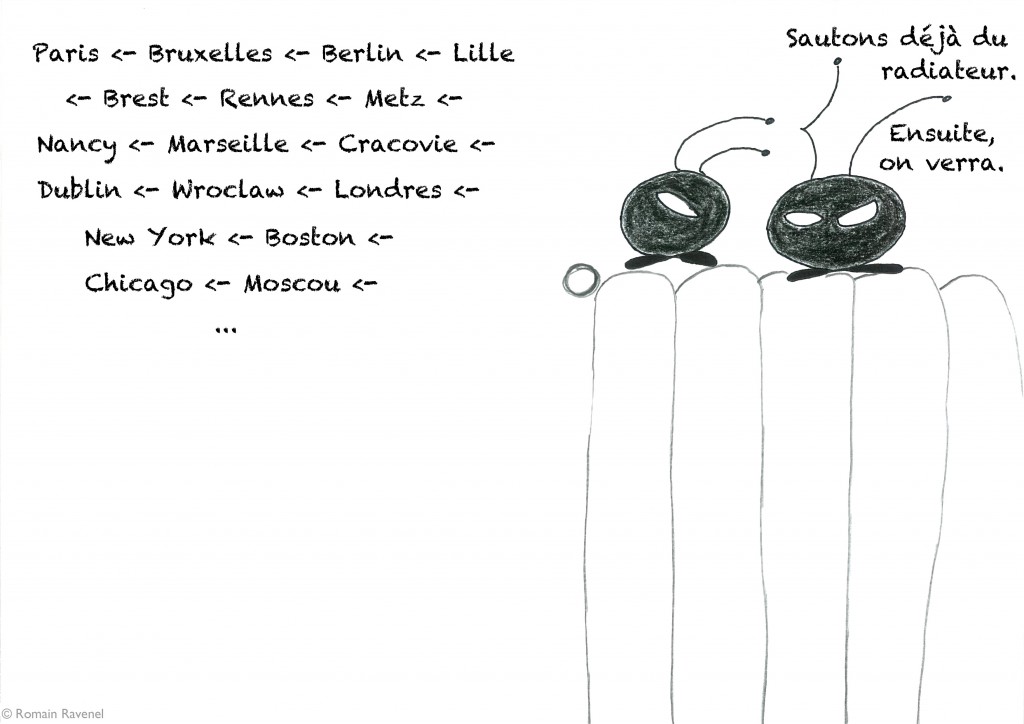 Paris <- Bruxelles <- Berlin <- Lille
<- Brest <- Rennes <- Metz <-
Nancy <- Marseille <- Cracovie <-
Dublin <- Wroclaw <- Londres <-
New York <- Boston <-
Chicago <- Moscou <-
...
Sautons déjà du
radiateur.
Ensuite,
on verra.
© Romain Ravenel